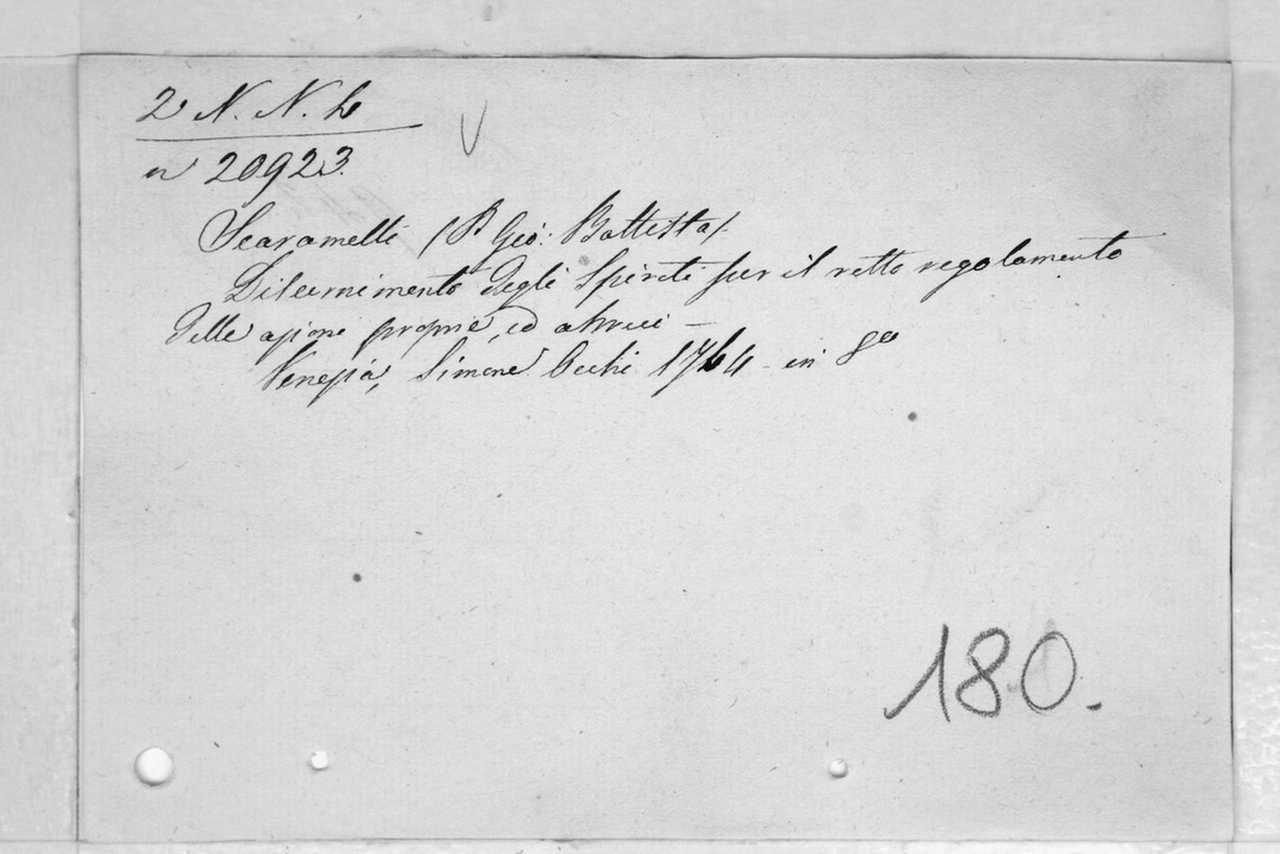 2 N. N. h
n 20923.
Scaramelli (P. Gio: Battista).
Discernimento degli Spiriti per il retto regolamento
delle azioni proprie, ed altrui —
Venezia, Simone Occhi 1764 - in 8°
180.